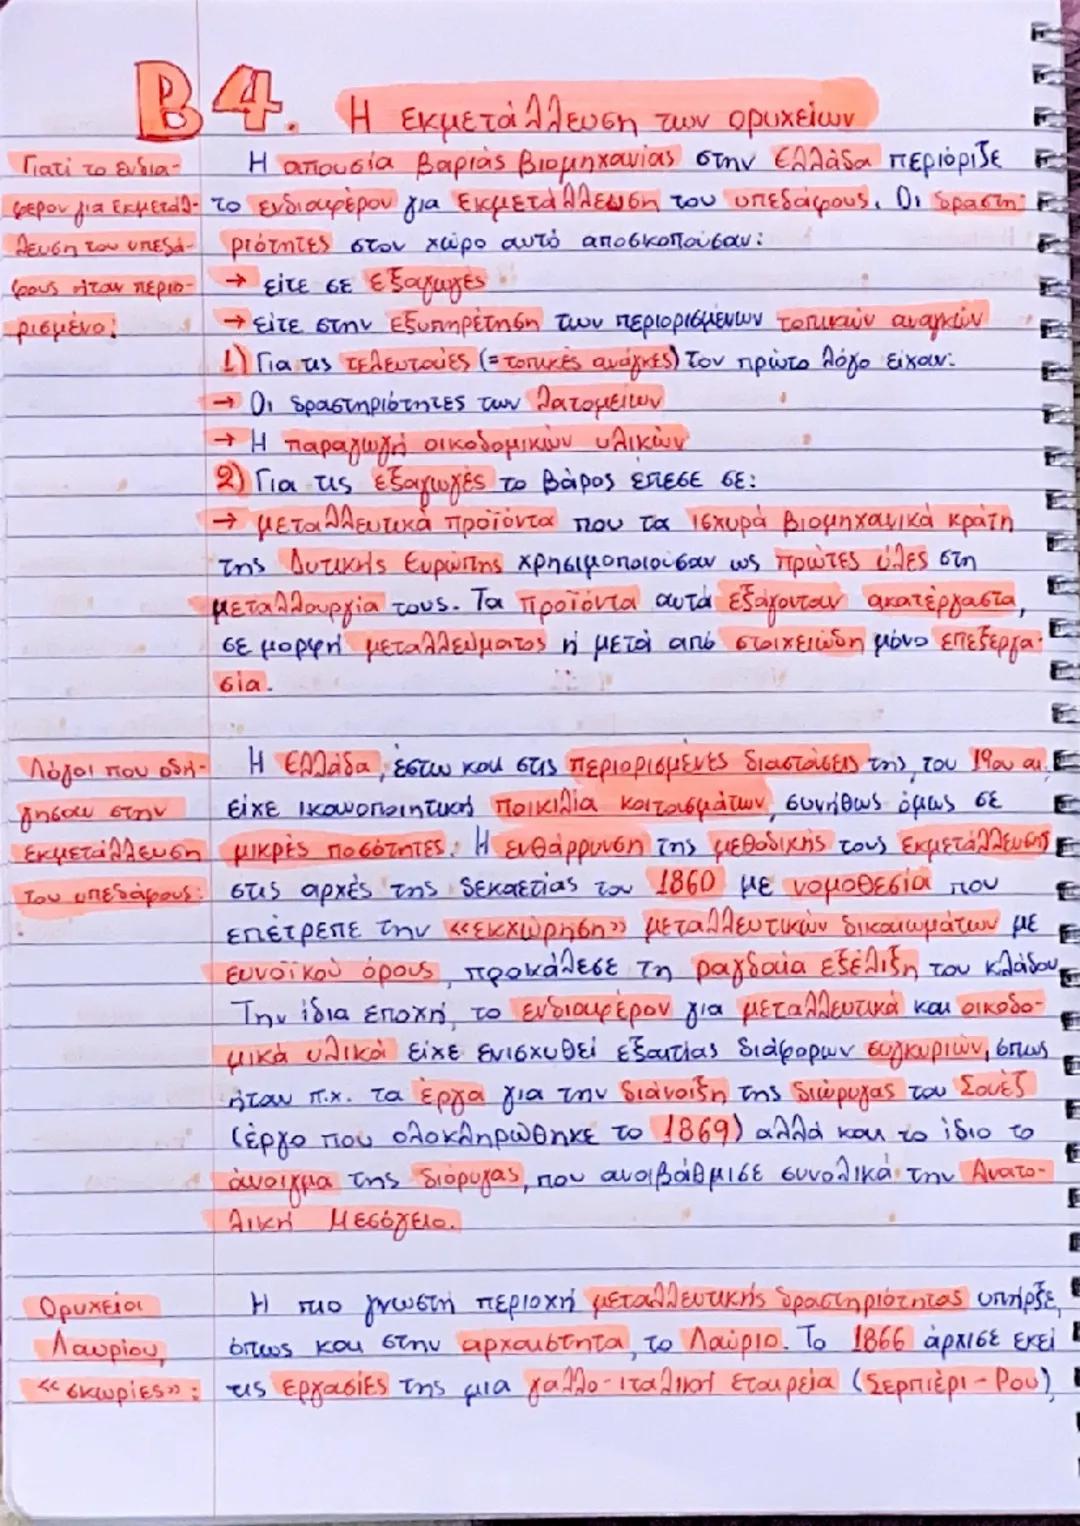 B4. Η εκμετάλλευση των ορυχείων
Γιατί το ενδια-
φέρον για εκμετάλ-
λευση του υπεδά-
φους ήταν περιο-
ρισμένο;
Η απουσία βαριάς βιομηχανίας στην Ελλάδα περιόριζε
το ενδιαφέρον για εκμετάλλευση του υπεδάφους. Οι δραστη-
ριότητες στον χώρο αυτό αποσκοπούσαν:
→ είτε σε εξαγωγές
→ είτε στην εξυπηρέτηση των περιορισμένων τοπικών αναγκών
1) Για τις τελευταίες (=τοπικές ανάγκες) τον πρώτο λόγο είχαν:
→ Οι δραστηριότητες των λατομείων
→ Η παραγωγή οικοδομικών υλικών
2) Για τις εξαγωγές το βάρος έπεσε σε:
→ μεταλλευτικά προϊόντα που τα ισχυρά βιομηχανικά κράτη
της Δυτικής Ευρώπης χρησιμοποιούσαν ως πρώτες ύλες στη
μεταλλουργία τους. Τα προϊόντα αυτά εξάγονταν ακατέργαστα,
σε μορφή μεταλλεύματος ή μετά από στοιχειώδη μόνο επεξεργα-
σία.
Λόγοι που οδή-
γησαν στην
εκμετάλλευση
του υπεδάφους:
Η Ελλάδα, έστω και στις περιορισμένες διαστάσεις της, του 19ου αι.
είχε ικανοποιητική ποικιλία κοιτασμάτων, συνήθως όμως σε
μικρές ποσότητες. Η ενθάρρυνση της μεθοδικής τους εκμετάλλευσης
στις αρχές της δεκαετίας του 1860 με νομοθεσία που
επέτρεπε την «εκχώρηση» μεταλλευτικών δικαιωμάτων με
ευνοϊκού όρους, προκάλεσε τη ραγδαία εξέλιξη του κλάδου
Την ίδια εποχή, το ενδιαφέρον για μεταλλευτικά και οικοδο-
μικά υλικά είχε ενισχυθεί εξαιτίας διάφορων συγκυριών, όπως
ήταν π.χ. τα έργα για την διάνοιξη της διώρυγας του Σουέζ
(έργο που ολοκληρώθηκε το 1869) αλλά και το ίδιο το
άνοιγμα της διόρυγας, που αναβάθμισε συνολικά την Ανατο-
λική Μεσόγειο.
Ορυχείοι
Λαυρίου,
«σκωρίες»:
Η πιο γνωστή περιοχή μεταλλευτικής δραστηριότητας υπήρξε,
όπως και στην αρχαιότητα, το Λαύριο. Το 1866 άρχισε εκεί
τις εργασίες της μια γαλλο-ιταλική εταιρεία (Σερπιέρι-Ρου),